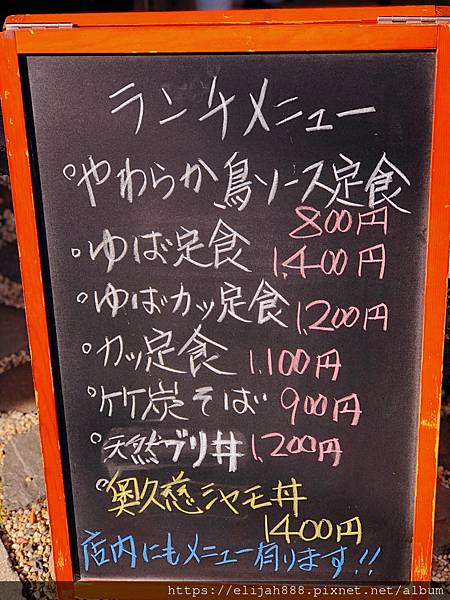 ランチメニュー
°やわらか鳥ソース定食
800円
°ゆば定食 1,400円
°ゆばカツ定食 1,200円
°カツ定食 1,100円
°竹炭そば 900円
°天然ブリ丼 1,200円
°奥久慈シャモ丼
1400円
店内にもメニュー有ります!!
https://elijah888.pixnet.net/album